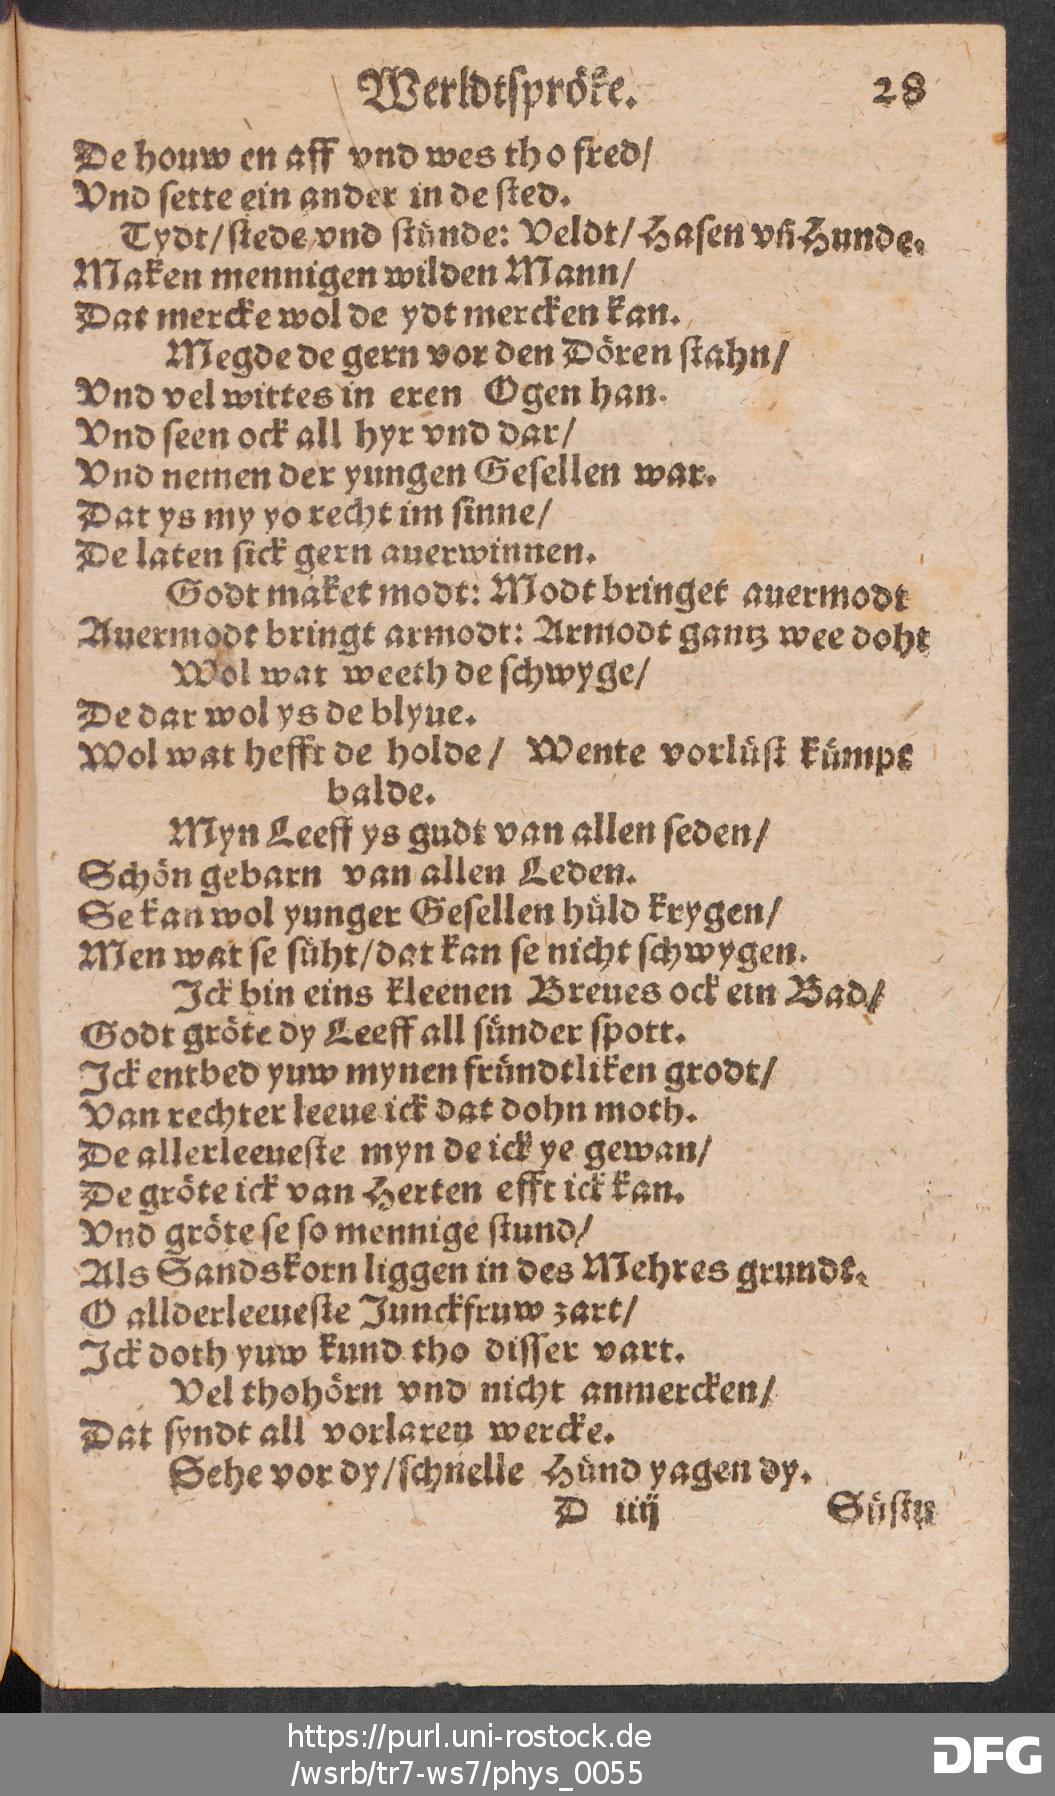 Werldtspröke. 28
De houw en aff vnd wes tho fred/
Vnd sette ein ander in de sted.
Tydt/stede vnd stünde: Veldt/Hasen vñ Hunde.
Maken mennigen wilden Mann/
Dat mercke wol de ydt mercken kan.
Megde de gern vor den Dören stahn/
Vnd vel wittes in eren Ogen han.
Vnd seen ock all hyr vnd dar/
Vnd nemen der yungen Gesellen war.
Dat ys my yo recht im sinne/
De laten sick gern auerwinnen.
Godt maket modt: Modt bringet auermodt
Auermodt bringt armodt: Armodt gantz wee doht
Wol wat weeth de schwyge/
De dar wol ys de blyue.
Wol wat hefft de holde/ Wente vorlüst kümpt
balde.
Myn Leeff ys gudt van allen seden/
Schön gebarn van allen Leden.
Se kan wol yunger Gesellen hüld krygen/
Men wat se süht/dat kan se nicht schwygen.
Ick bin eins kleenen Breues ock ein Bad/
Godt gröte dy Leeff all sünder spott.
Ick entbed yuw mynen fründtliken grodt/
Van rechter leeue ick dat dohn moth.
De allerleeueste myn de ick ye gewan/
De gröte ick van Herten efft ick kan.
Vnd gröte se so mennige stund/
Als Sandskorn liggen in des Mehres grundt.
O allderleeueste Junckfruw zart/
Ick doth yuw kund tho disser vart.
Vel thohörn vnd nicht anmercken/
Dat syndt all vorlaren wercke.
Sehe vor dy/schnelle Hünd yagen dy.
D iiij Süstu
https://purl.uni-rostock.de
/wsrb/tr7-ws7/phys_0055
DFG